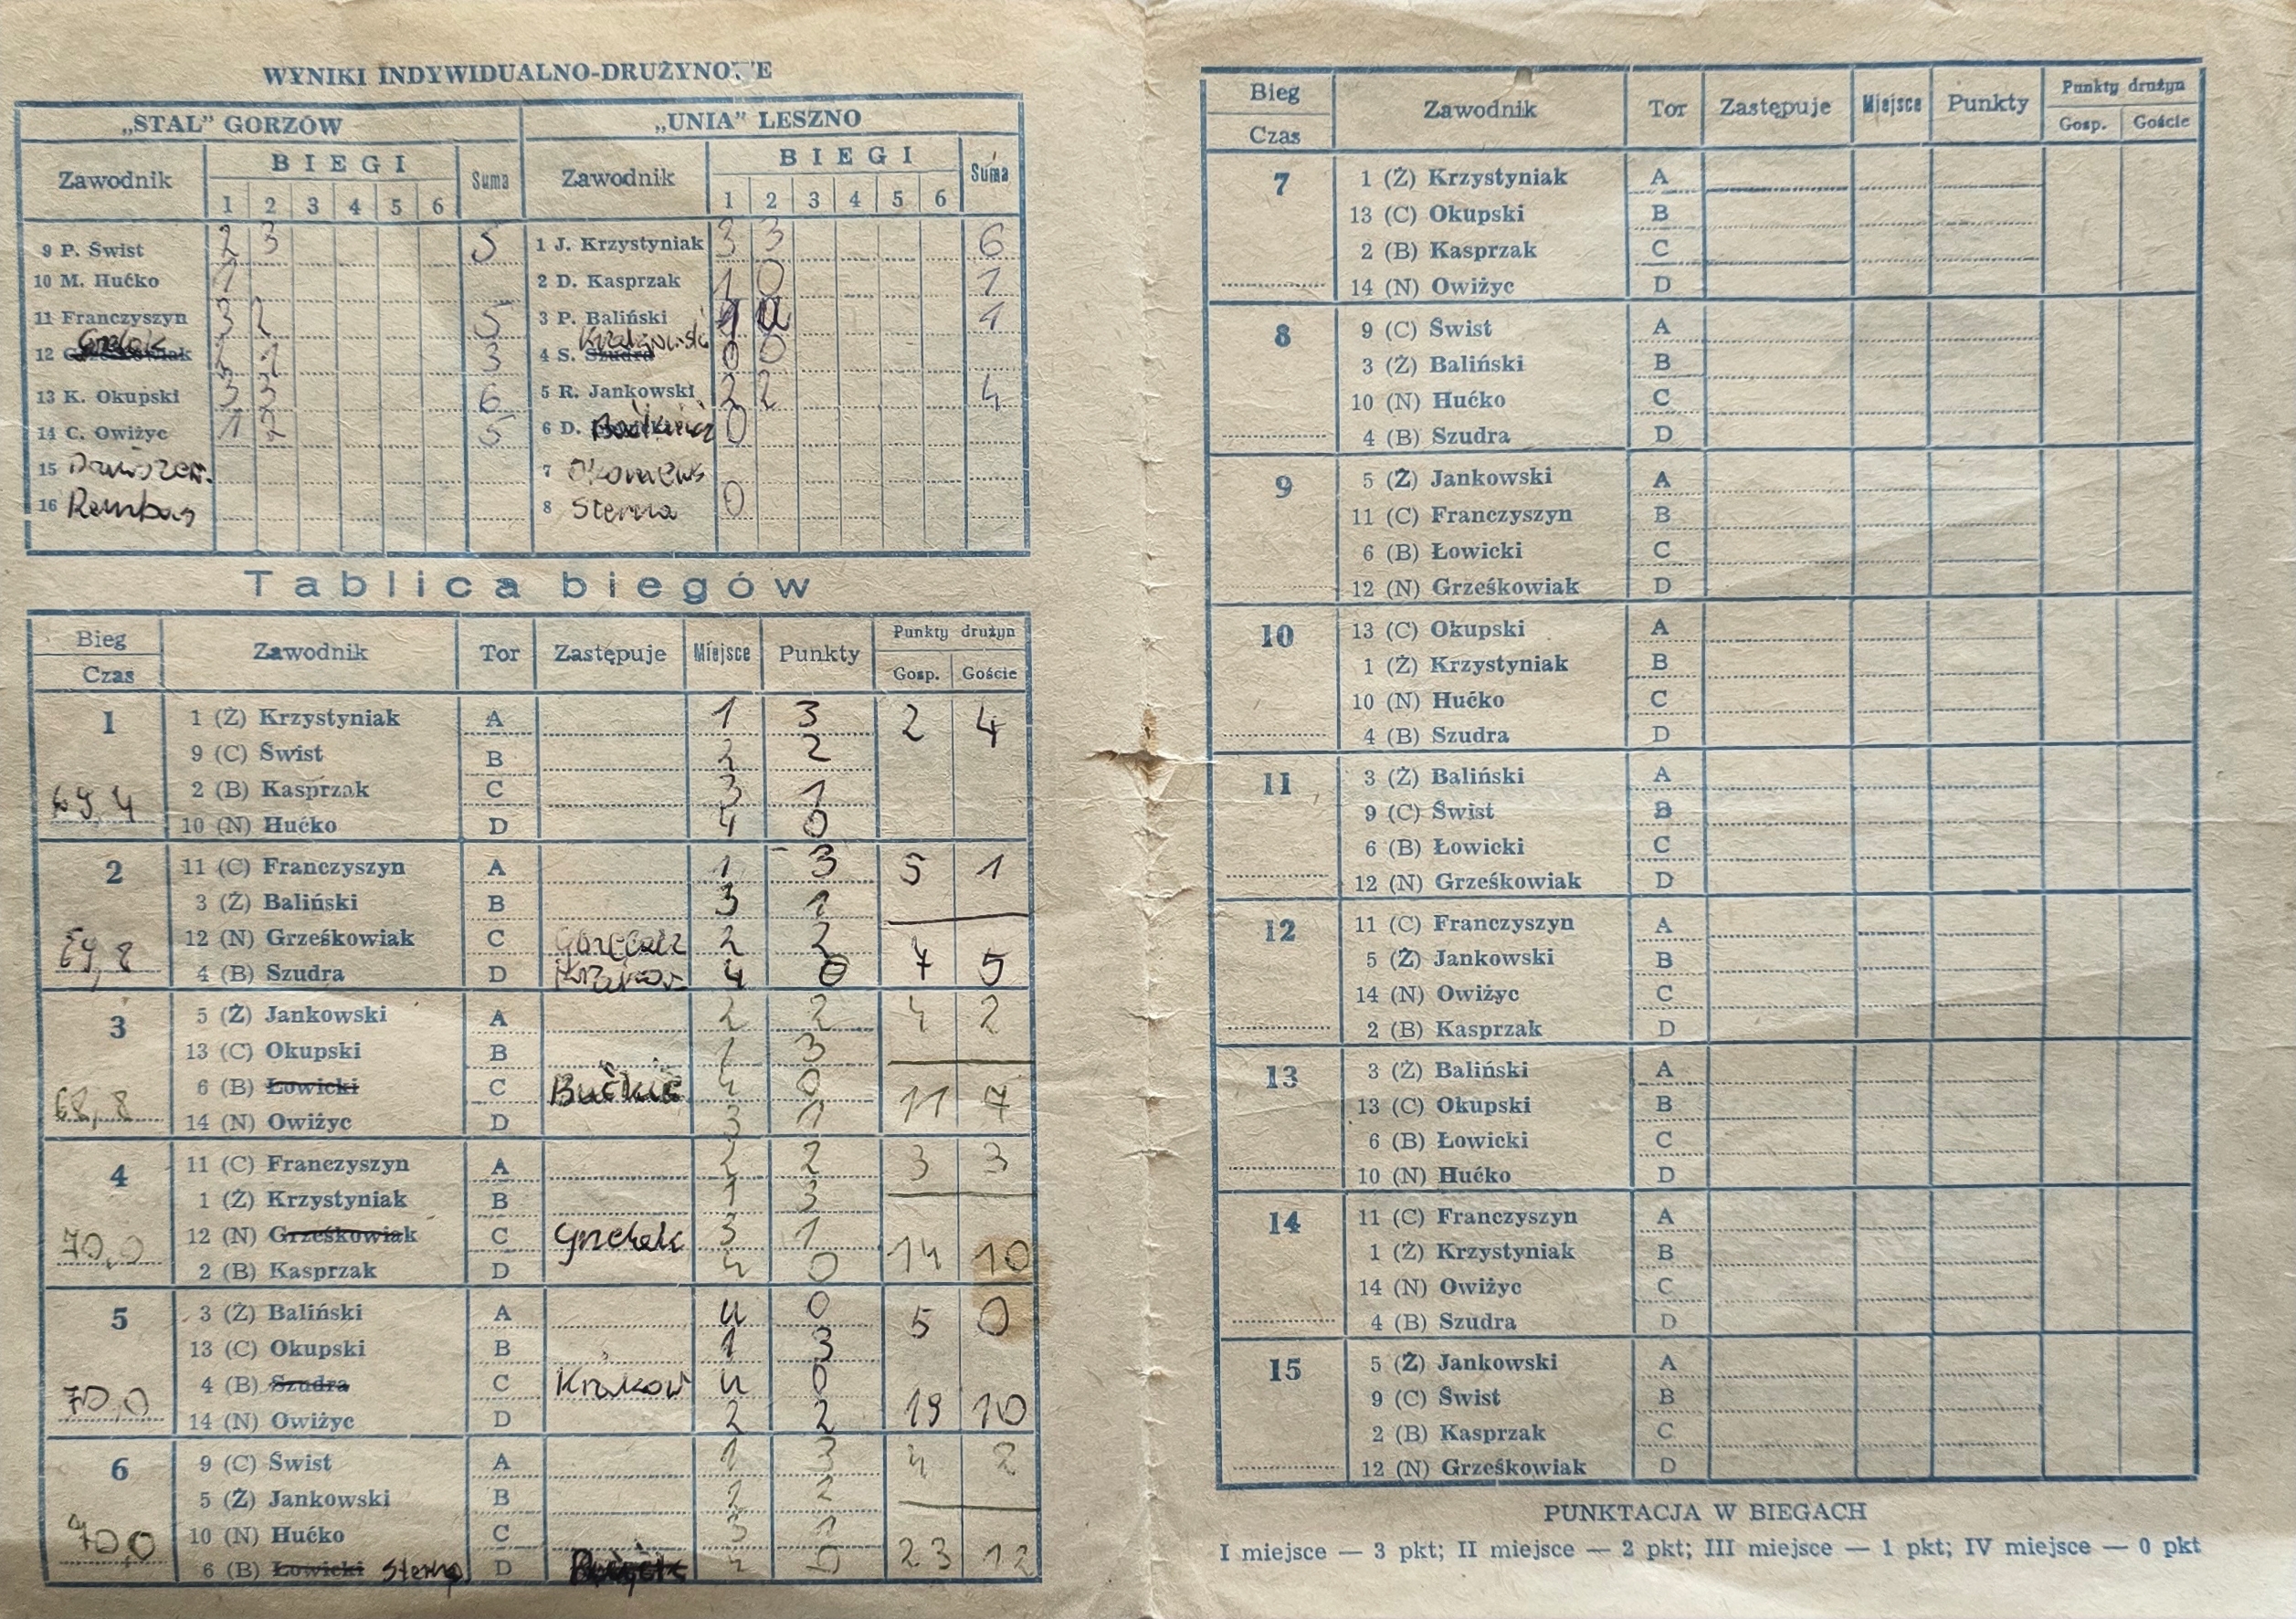 WYNIKI INDYWIDUALNO-DRUŻYNOWE
„STAL" GORZÓW „UNIA" LESZNO
Zawodnik BIEGI Suma Zawodnik BIEGI Suma
1 2 3 4 5 6 1 2 3 4 5 6
9 P. Świst 2 3 5 1 J. Krzystyniak 3 3 6
10 M. Hućko 1 2 D. Kasprzak 1 0 1
11 Franczyszyn 3 2 5 3 P. Baliński 1 u 1
12 3 4 S. Szudra 0 0
13 K. Okupski 3 3 6 5 R. Jankowski 2 2 4
14 C. Owiżyc 1 2 5 6 D. 0
15 7
16 Rembas 8 Sterna 0
Tablica biegów
Bieg Czas Zawodnik Tor Zastępuje Miejsce Punkty Punkty drużyn Gosp. Goście
1 1 (Ż) Krzystyniak A 1 3 2 4
9 (C) Świst B 2 2
2 (B) Kasprzak C 3 1
69,4 10 (N) Hućko D 4 0
2 11 (C) Franczyszyn A 1 3 5 1
3 (Ż) Baliński B 3 1
69,8 12 (N) Grześkowiak C 2 2
4 (B) Szudra D 4 0 7 5
3 5 (Ż) Jankowski A 2 2 4 2
13 (C) Okupski B 1 3
68,8 6 (B) Łowicki C 4 0 11 7
14 (N) Owiżyc D 3 1
4 11 (C) Franczyszyn A 2 2 3 3
1 (Ż) Krzystyniak B 1 3
70,0 12 (N) Grześkowiak C 3 1
2 (B) Kasprzak D 4 0 14 10
5 3 (Ż) Baliński A u 0 5 0
13 (C) Okupski B 1 3
70,0 4 (B) Szudra C u 0
14 (N) Owiżyc D 2 2 19 10
6 9 (C) Świst A 1 3 4 2
5 (Ż) Jankowski B 2 2
70,0 10 (N) Hućko C 3 1
6 (B) Łowicki Sterna D 4 0 23 12
Bieg Czas Zawodnik Tor Zastępuje Miejsce Punkty Punkty drużyn Gosp. Goście
7 1 (Ż) Krzystyniak A
13 (C) Okupski B
2 (B) Kasprzak C
14 (N) Owiżyc D
8 9 (C) Świst A
3 (Ż) Baliński B
10 (N) Hućko C
4 (B) Szudra D
9 5 (Ż) Jankowski A
11 (C) Franczyszyn B
6 (B) Łowicki C
12 (N) Grześkowiak D
10 13 (C) Okupski A
1 (Ż) Krzystyniak B
10 (N) Hućko C
4 (B) Szudra D
11 3 (Ż) Baliński A
9 (C) Świst B
6 (B) Łowicki C
12 (N) Grześkowiak D
12 11 (C) Franczyszyn A
5 (Ż) Jankowski B
14 (N) Owiżyc C
2 (B) Kasprzak D
13 3 (Ż) Baliński A
13 (C) Okupski B
6 (B) Łowicki C
10 (N) Hućko D
14 11 (C) Franczyszyn A
1 (Ż) Krzystyniak B
14 (N) Owiżyc C
4 (B) Szudra D
15 5 (Ż) Jankowski A
9 (C) Świst B
2 (B) Kasprzak C
12 (N) Grześkowiak D
PUNKTACJA W BIEGACH
I miejsce — 3 pkt; II miejsce — 2 pkt; III miejsce — 1 pkt; IV miejsce — 0 pkt